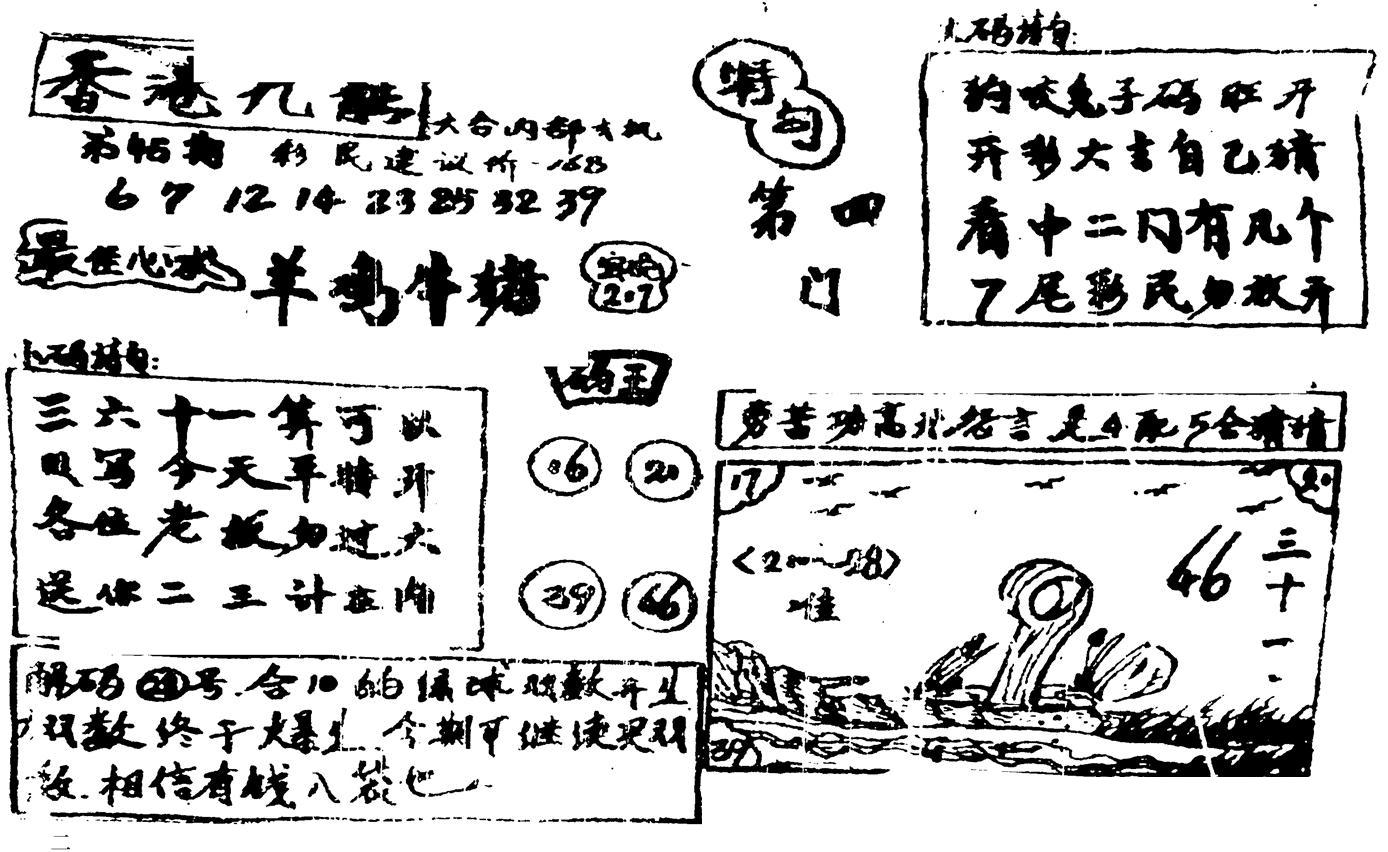 香港九龍
大合内部玄机
第45期 彩民建议价·168
6 7 12 14 23 25 32 39
最佳心水 羊鸡牛猪
2.7
特句
第四
门
码猜句:
狗咬兔子码旺开
开彩大吉自己猜
看中二门有几个
7尾彩民勿放开
码猜句:
三六十一算可以
写今天平特开
各位老板勿过大
送你二三计在内
码王
06 20
39 46
劳苦功高 怨言是4配5合猜猜
17 20
46
三十一
39
解码 号.合10的绿球双数开出
双数终于爆出.今期可继续买双
数.相信有钱入袋也
二